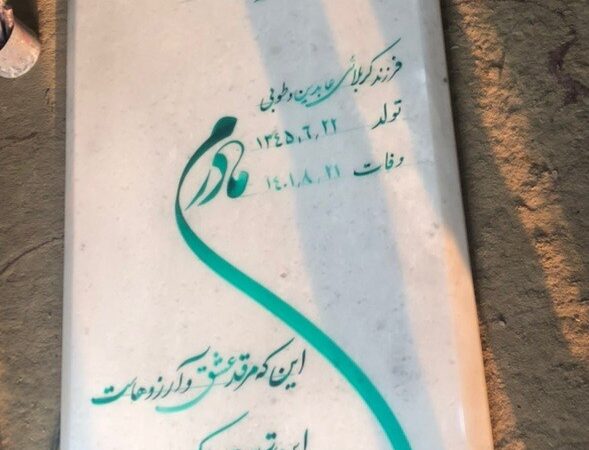 فرزند کربلائی عابدین و طوبی
تولد ۱۳۴۵٫۶٫۲۲
وفات ۱۴۰۱٫۸٫۲۱
مادرم
این که مرقد عشق و آرزوهاست